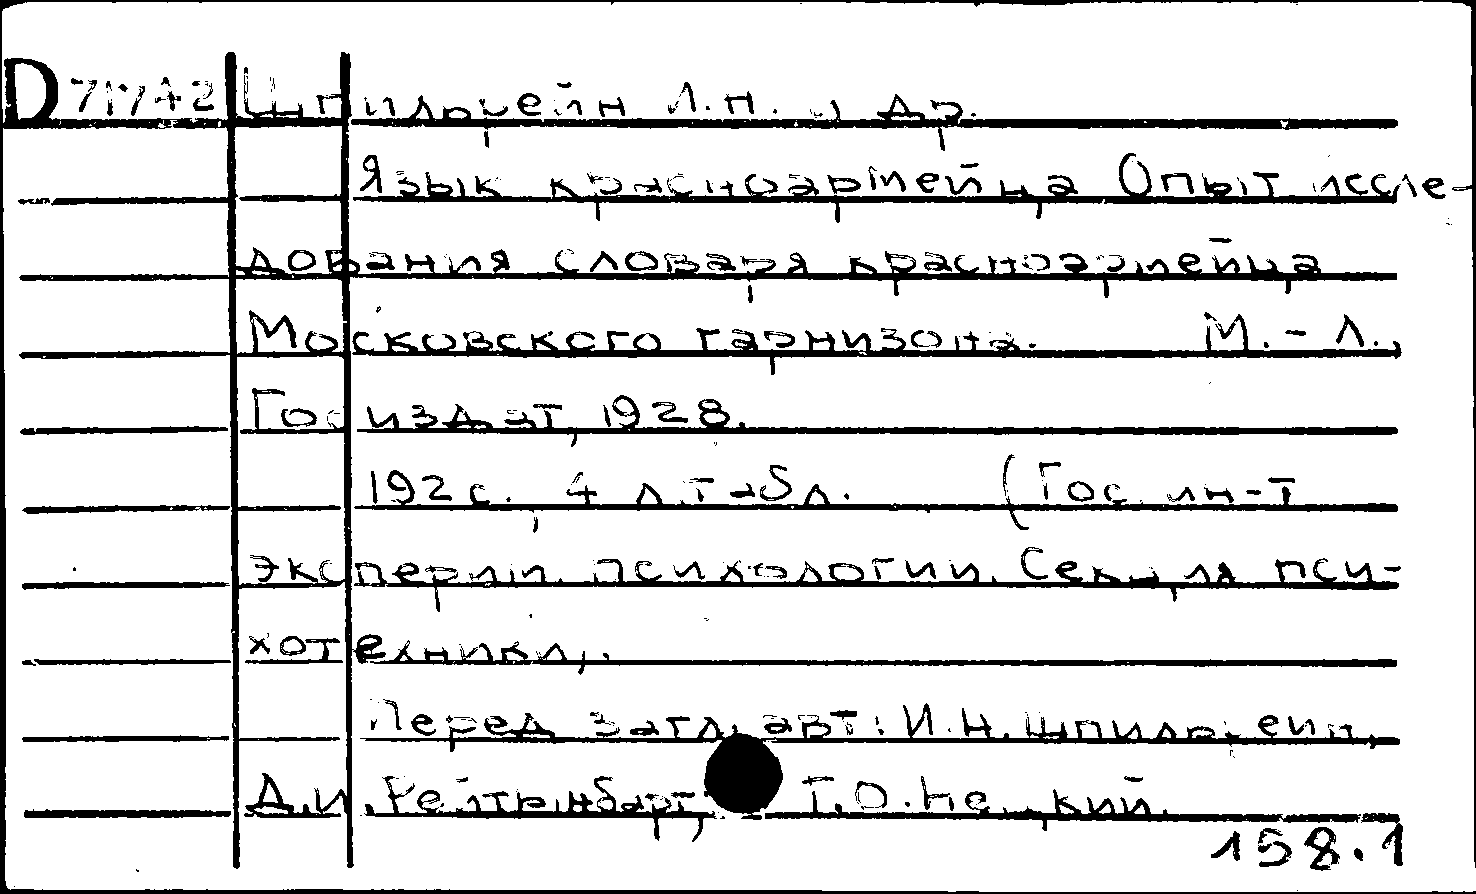 D 71742 Шпильрейн И.Н. и др.
Язык красноармейца Опыт иссле-
дования словаря красноармейца
Московского гарнизона. М.-Л.,
Госиздат, 1928.
192 с., 4 л. табл. (Гос. ин-т
эксперим. психологии. Секция пси-
хотехники).
Перед загл. авт: И.Н. Шпильрейн,
Д.И. Рейтынбарг, Г.О. Нецкий.
158.1